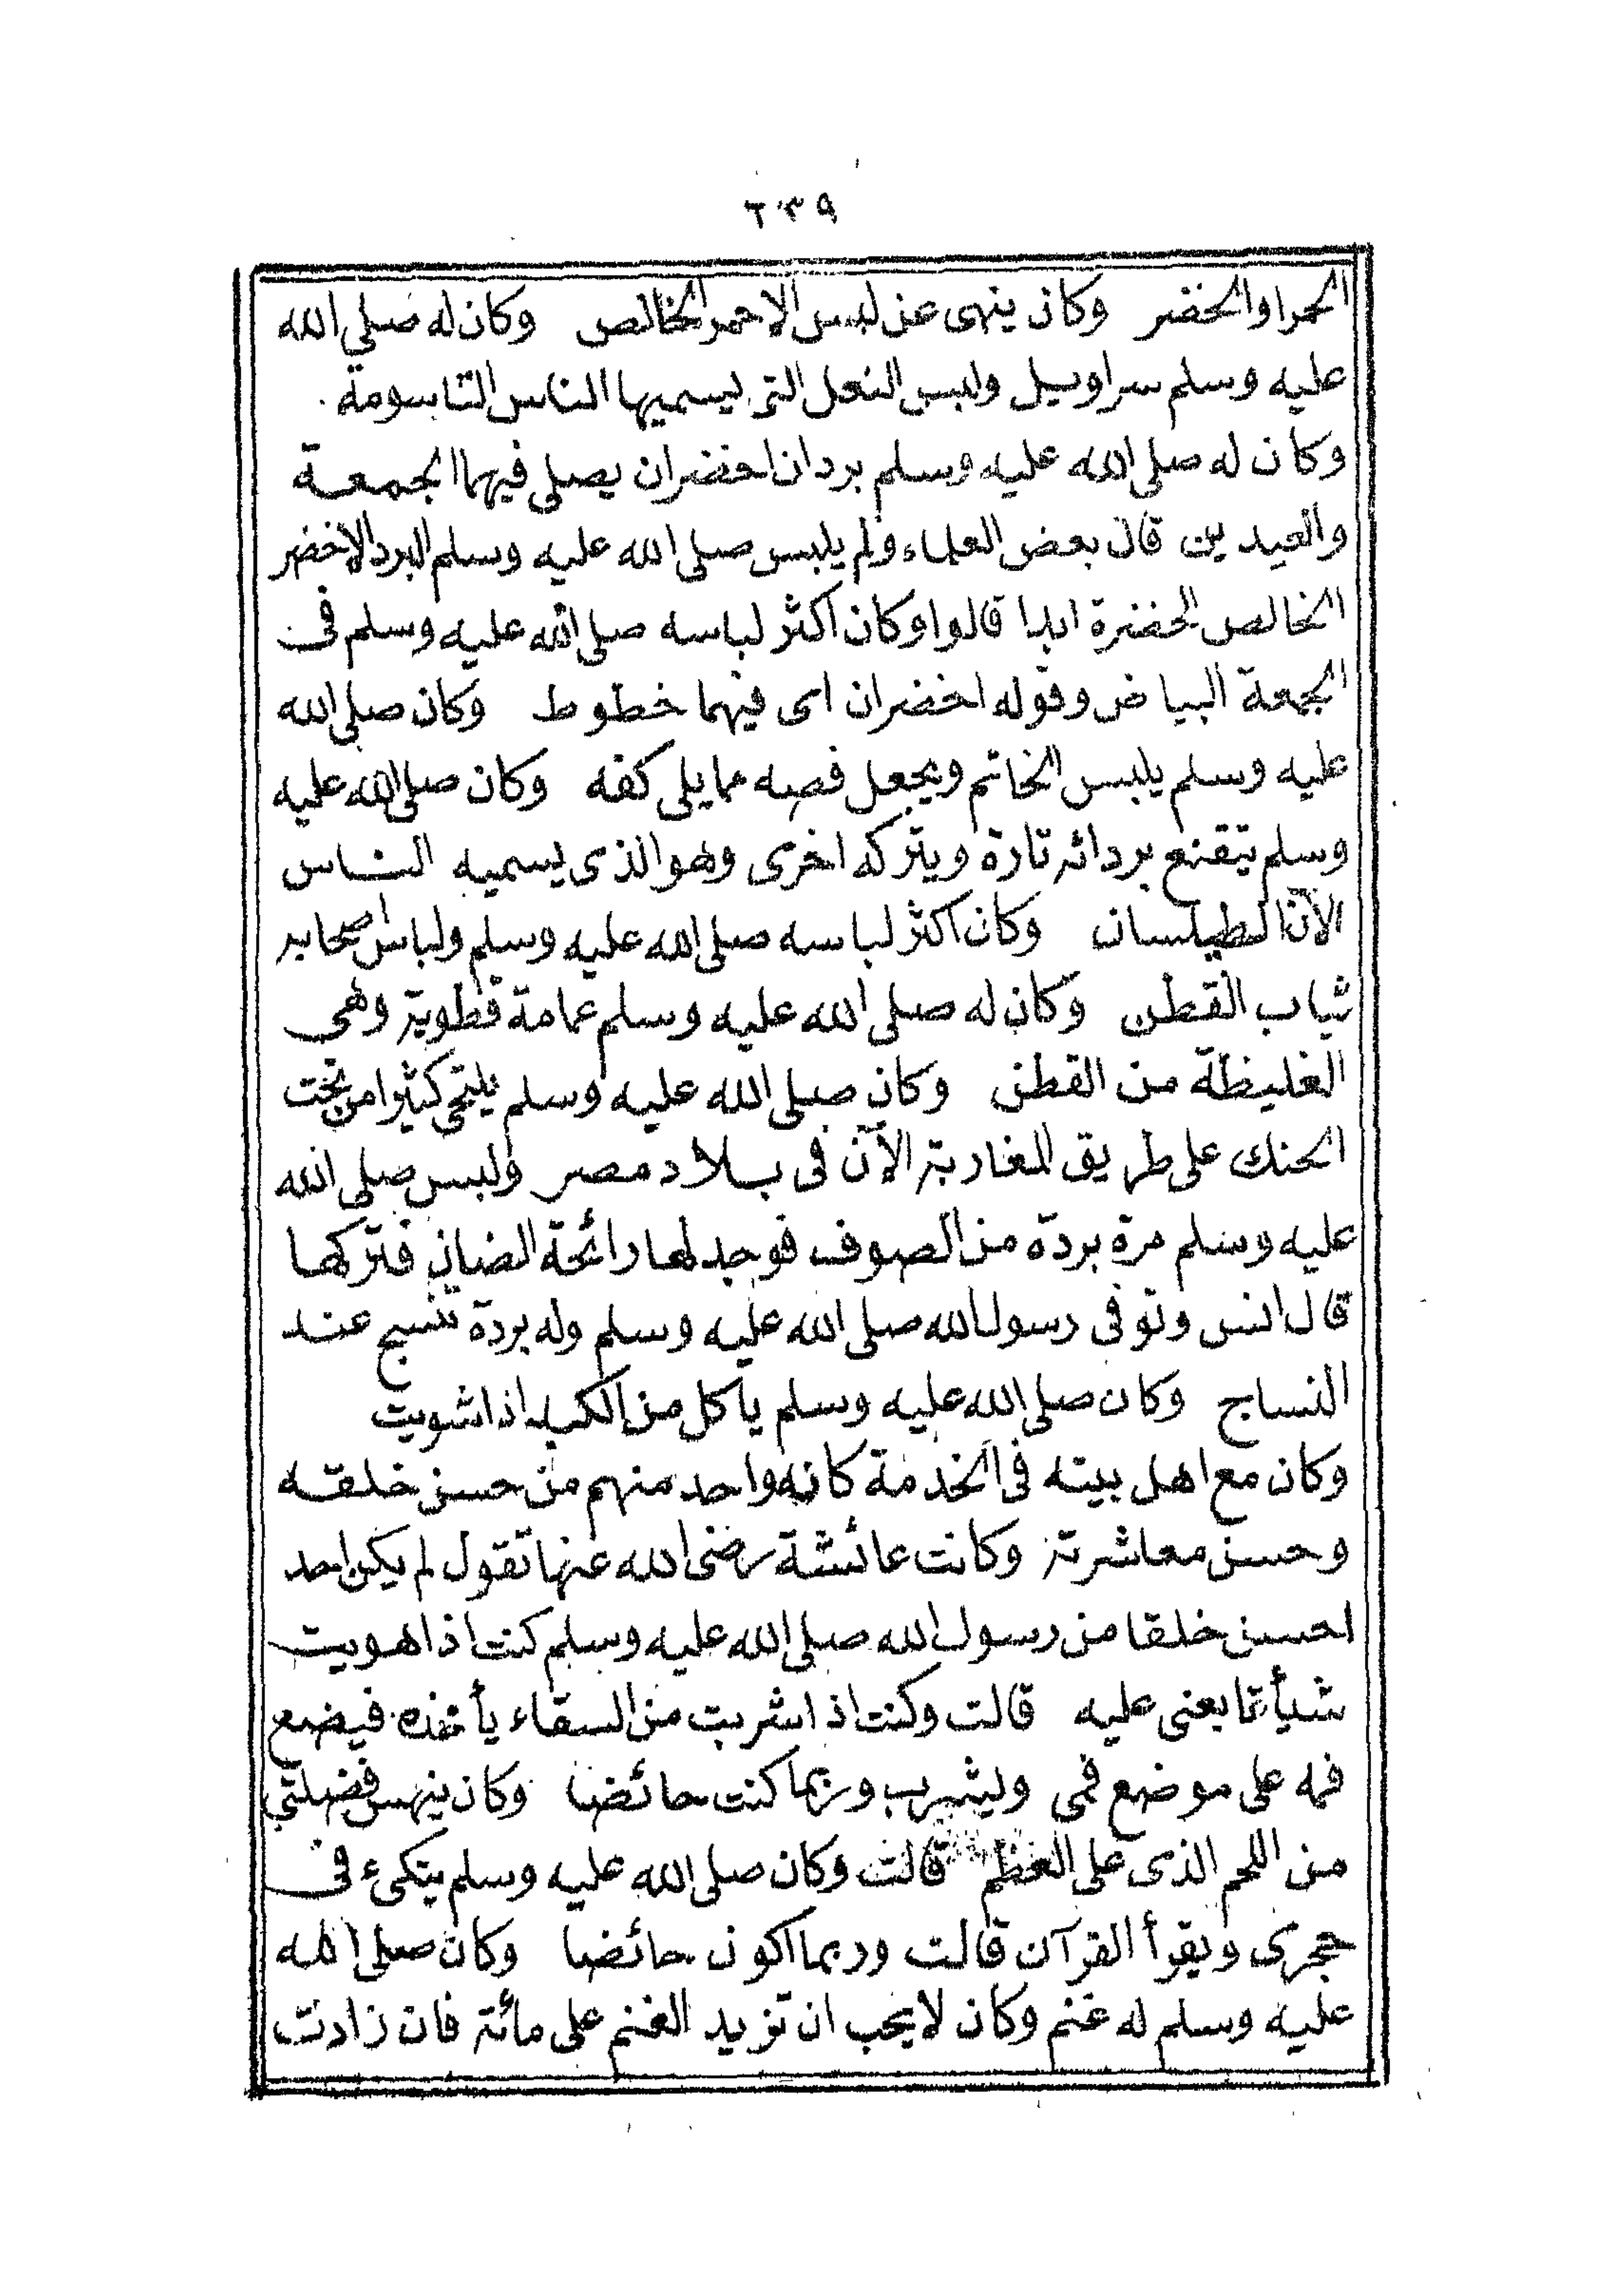 ٢٣٩
الحمرا والخضر وكان ينهى عن لبس الاحمر الخالص وكان له صلى الله
عليه وسلم سراويل ولبس النعل التى يسميها الناس التاسومة.
وكان له صلى الله عليه وسلم بردان اخضران يصلى فيهما الجمعة
والعيدين قال بعض العلماء ولم يلبس صلى الله عليه وسلم البرد الاخضر
الخالص الخضرة ابدا قالوا وكان اكثر لباسه صلى الله عليه وسلم فى
الجمعة البياض وقوله اخضران اى فيهما خطوط وكان صلى الله
عليه وسلم يلبس الخاتم ويجعل فصه مما يلى كفه وكان صلى الله عليه
وسلم يتقنع بردائه تارة ويتركه اخرى وهو الذى يسميه الناس
الآن الطيلسان وكان اكثر لباسه صلى الله عليه وسلم ولباس اصحابه
ثياب القطن وكان له صلى الله عليه وسلم عمامة قطوية وهى
الغليظة من القطن وكان صلى الله عليه وسلم يلتحى كثيرا من تحت
الحنك على طريق المغاربة الآن فى بلاد مصر ولبس صلى الله
عليه وسلم مرة بردة من الصوف فوجد لها رائحة الضان فتركها
قال انس وتوفى رسول الله صلى الله عليه وسلم وله بردة تنسج عند
النساج وكان صلى الله عليه وسلم ياكل من الكبد اذا شويت
وكان مع اهل بيته فى الخدمة كانه واحد منهم من حسن خلقه
وحسن معاشرته وكانت عائشة رضى الله عنها تقول لم يكن احد
احسن خلقا من رسول الله صلى الله عليه وسلم كنت اذا هويت
شيأ تابعنى عليه قالت وكنت اذا شربت من السقاء يأخذه فيضع
فمه على موضع فمى ويشرب وربما كنت حائضا وكان ينهس فضلتى
من اللحم الذى على العظم قالت وكان صلى الله عليه وسلم يتكىء فى
حجرى ويقرأ القرآن قالت وربما اكون حائضا وكان صلى الله
عليه وسلم له غنم وكان لا يحب ان تزيد الغنم على مائة فان زادت